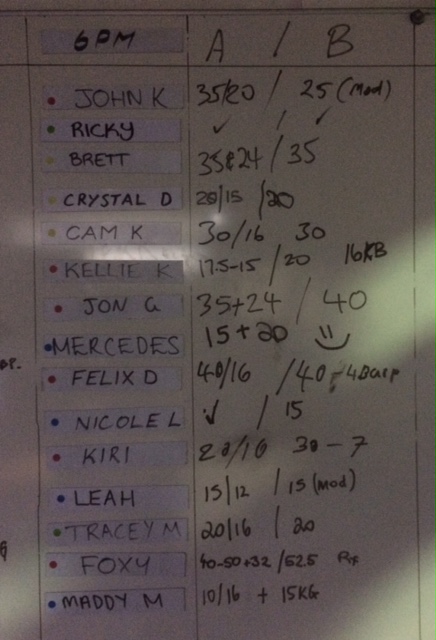 6PM A / B
JOHN K 35/20 / 25 (Mod)
RICKY ✓ / ✓
BRETT 35&24 / 35
CRYSTAL D 20/15 / 20
CAM K 30/16 30
KELLIE K 17.5-15 / 20 16KB
JON G 35+24 / 40
MERCEDES 15 + 20
FELIX D 40/16 / 40
NICOLE L ✓ / 15
KIRI 20/16 30 - 7
LEAH 15/12 / 15 (Mod)
TRACEY M 20/16 / 20
FOXY 40-50+32 / 52.5 Rx
MADDY M 10/16 + 15KG